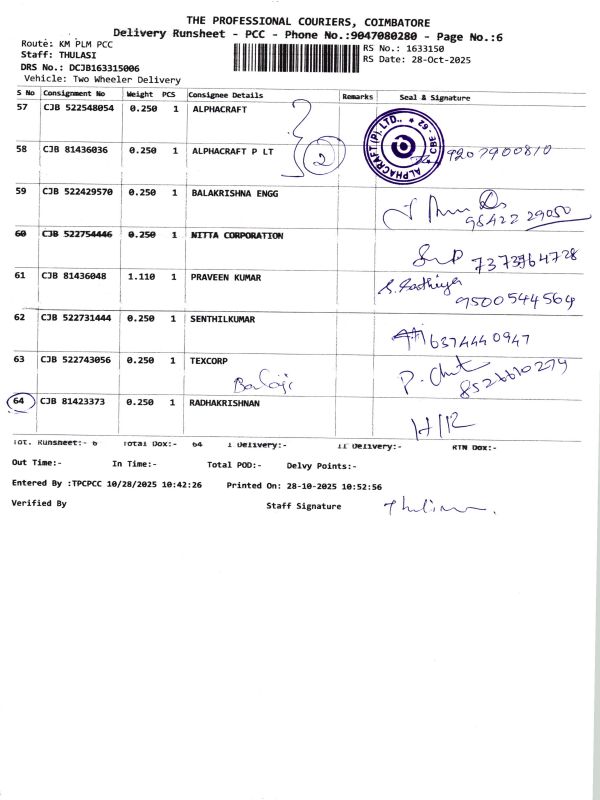 THE PROFESSIONAL COURIERS, COIMBATORE
Delivery Runsheet - PCC - Phone No.:9047080280 - Page No.:6
Route: KM PLM PCC
RS No.: 1633150
Staff: THULASI
RS Date: 28-Oct-2025
DRS No.: DCJB163315006
Vehicle: Two Wheeler Delivery
S No Consignment No Weight PCS Consignee Details Remarks Seal & Signature
57 CJB 522548054 0.250 1 ALPHACRAFT
ALPHACRAFT (P) LTD., * CBE - 62 *
58 CJB 81436036 0.250 1 ALPHACRAFT P LT 2 9207900810
59 CJB 522429570 0.250 1 BALAKRISHNA ENGG
98422 29050
60 CJB 522754446 0.250 1 NITTA CORPORATION
7373964728
61 CJB 81436048 1.110 1 PRAVEEN KUMAR
9500544564
62 CJB 522731444 0.250 1 SENTHILKUMAR
6374440947
63 CJB 522743056 0.250 1 TEXCORP
Balaji
8526610279
64 CJB 81423373 0.250 1 RADHAKRISHNAN
H/R
Tot. Runsheet:- 6 Total Dox:- 64 I Delivery:- II Delivery:- RTN Dox:-
Out Time:- In Time:- Total POD:- Delvy Points:-
Entered By :TPCPCC 10/28/2025 10:42:26 Printed On: 28-10-2025 10:52:56
Verified By Staff Signature